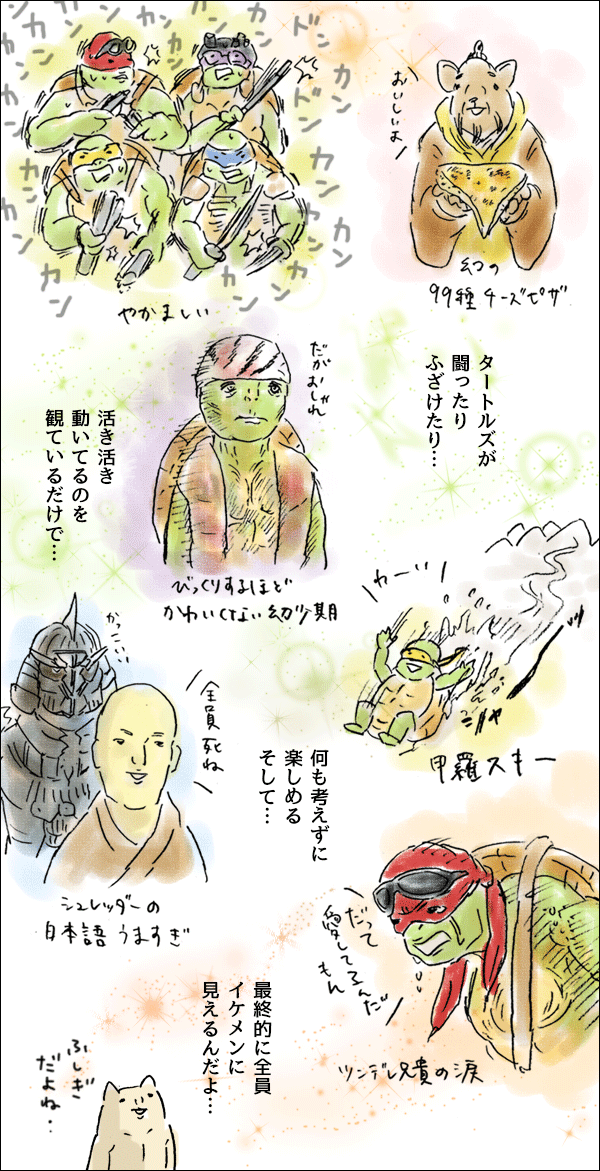 カン カン カン カン ドン カン カン
カン カン カン カン ドン カン カン カン
やかましい
おいしいよ
幻の
99種チーズピザ
タートルズが
闘ったり
ふざけたり…
だがおしゃれ
びっくりするほど
かわいくない幼少期
活き活き
動いてるのを
観ているだけで…
わーい
甲羅スキー
かっこいい
全員死ね
シュレッダーの
日本語うますぎ
何も考えずに
楽しめる
そして…
だって
愛してるんだ
もん
ツンデレ兄貴の涙
最終的に全員
イケメンに
見えるんだよ…
ふしぎ
だよね‥